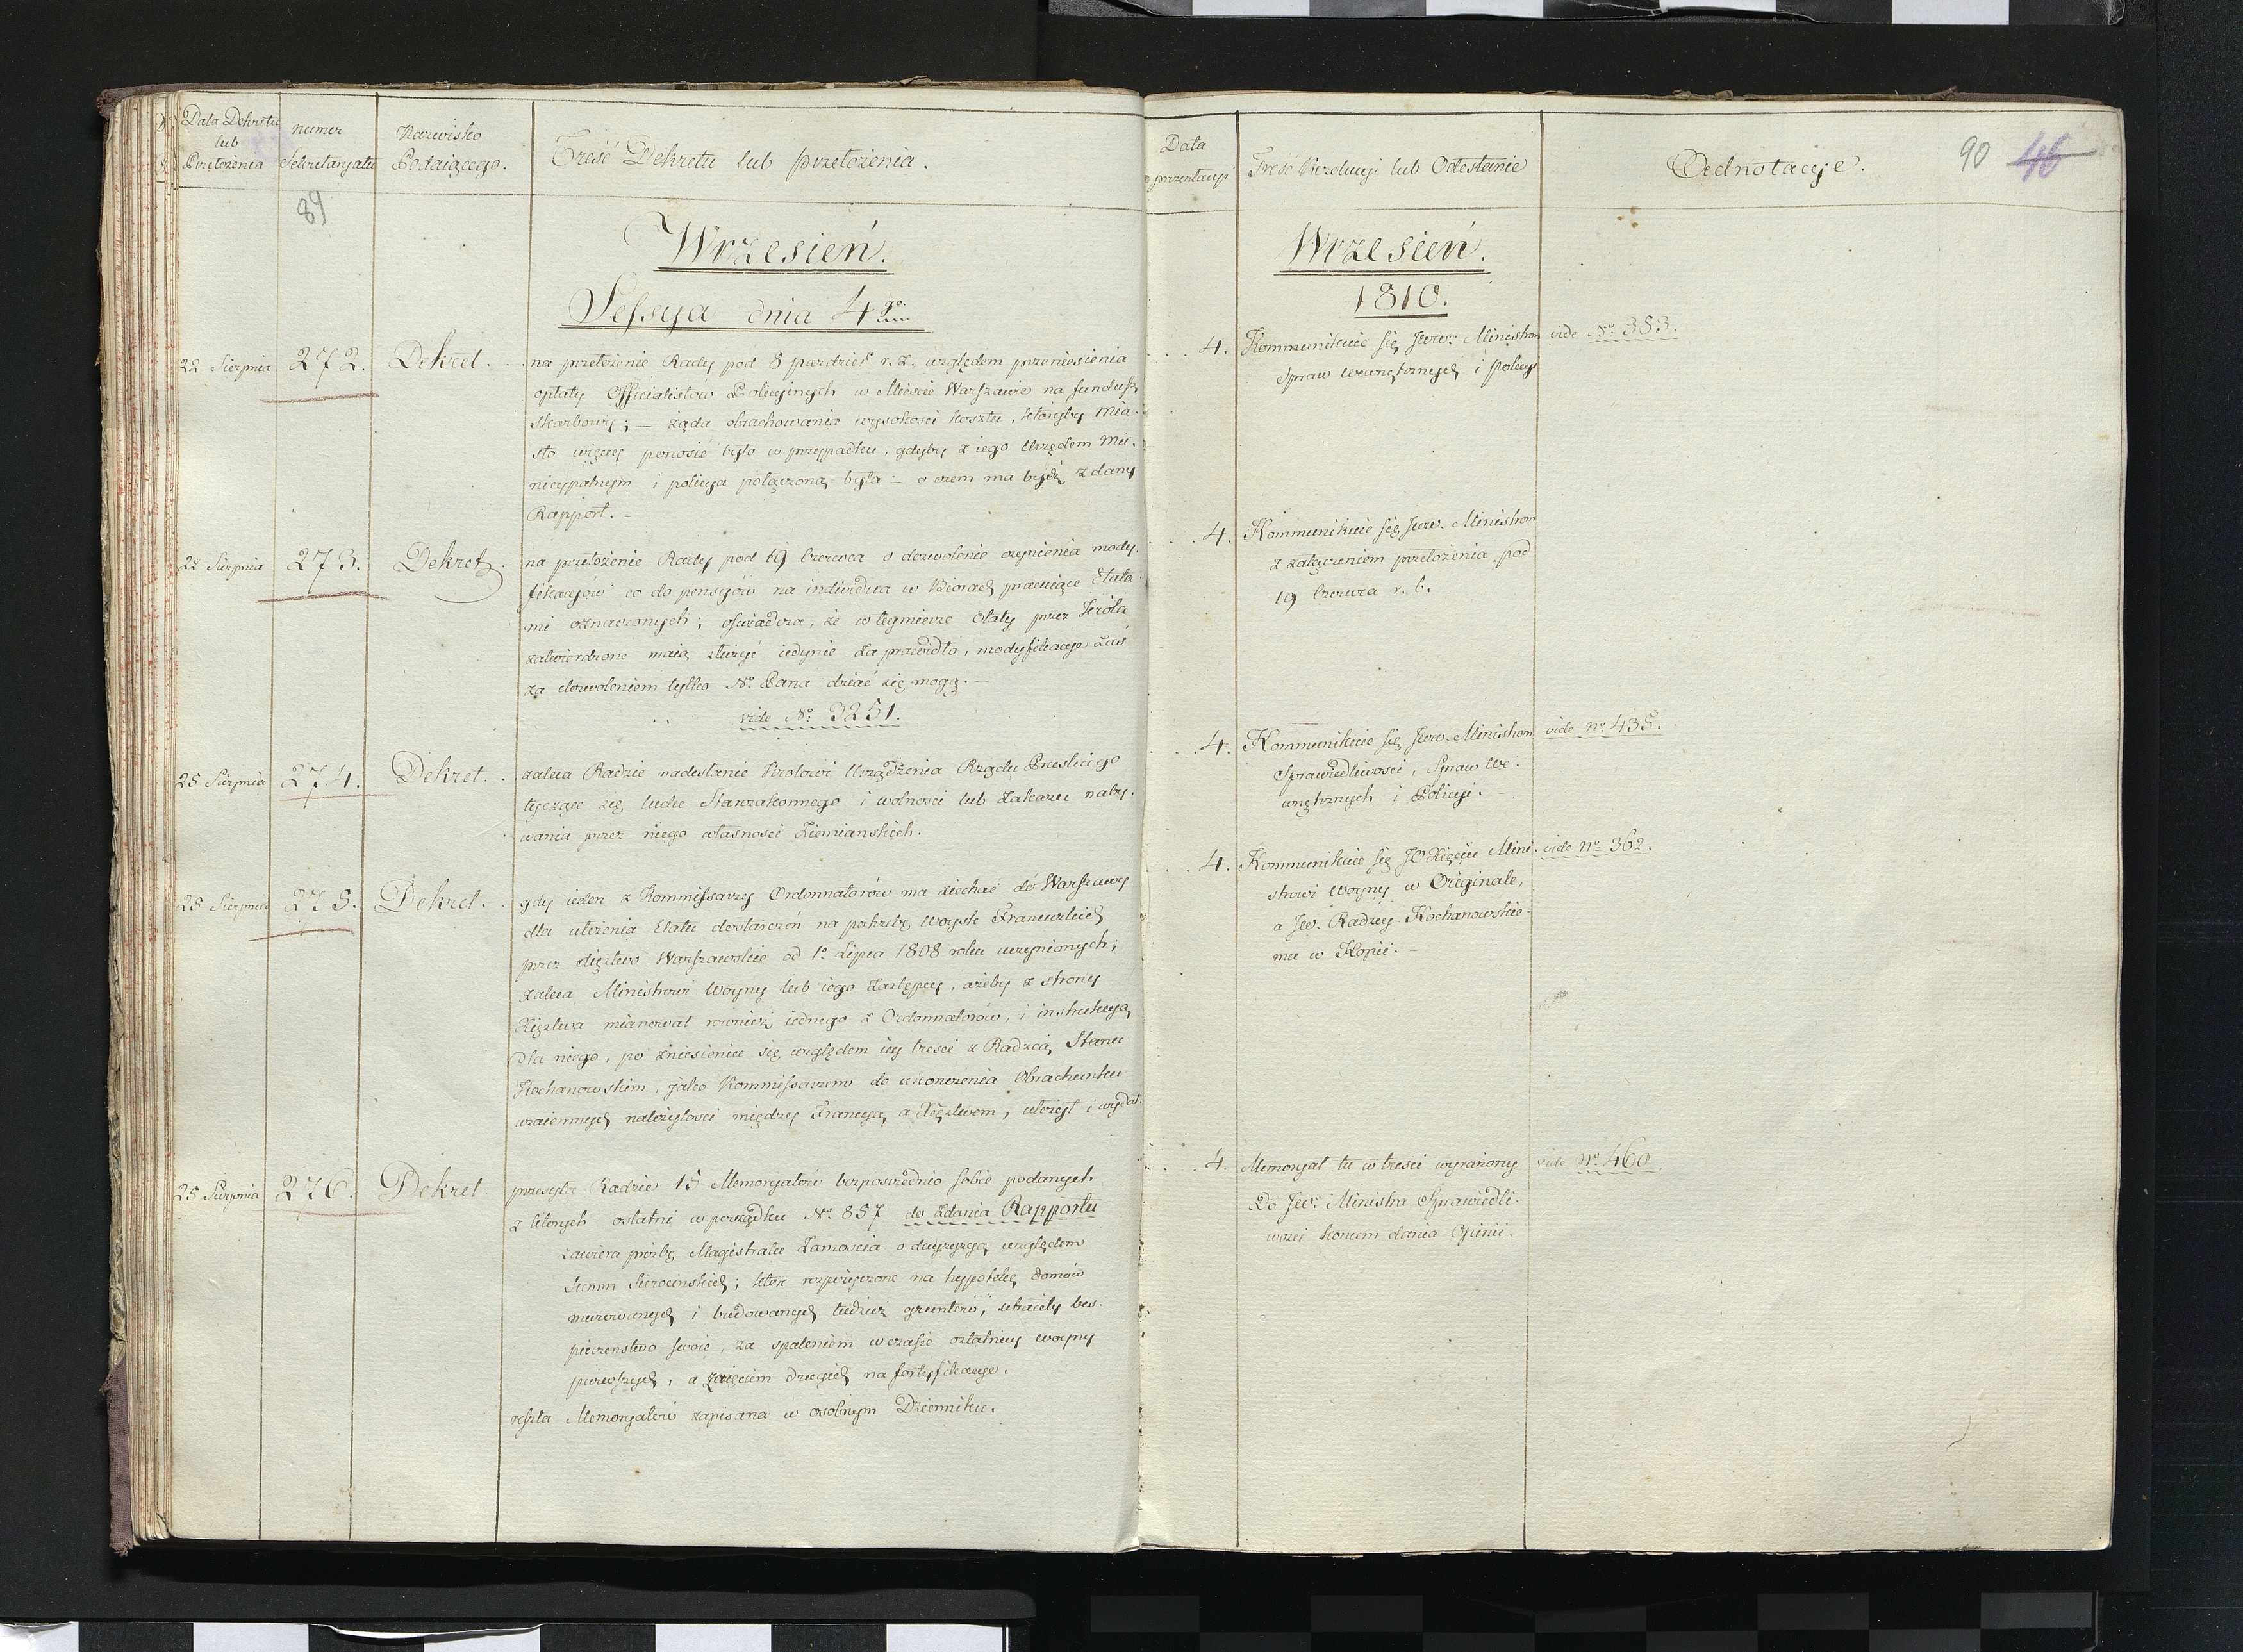 Data Dekretu
lub
Przełożenia
numer
Sekretaryatu
Nazwisko
Podaiącego.
Treść Dekretu lub przełożenia.
89
Wrzesień.
Sessya dnia 4go
22 Sierpnia 272. Dekret.
na przełożenie Rady pod 8 paździer r. z. względem przeniesienia
opłaty Officialistów Policyinych w Mieście Warszawie na fundusz
skarbowy; – żąda obrachowania wysokości kosztu, któryby mia-
sto więcey ponosić było w przypadku, gdyby z iego Urzędem Mu-
nicypalnym i policya połączoną była – o czem ma bydź zdany
Rapport. –
22 Sierpnia 273. Dekret.
na przełożenie Rady pod 19 Czerwca o dozwolenie czynienia mody-
fikacyów co do pensyów na individua w Biorach pracuiące Etata-
mi oznaczonych; oświadcza, że w tey mierze Etaty przez Króla
zatwierdzone maią służyć iedynie za prawidło, modyfikacye zaś
za dozwoleniem tylko N. Pana dziać się mogą. –
vide No 3251.
25 Sierpnia 274. Dekret.
zaleca Radzie nadesłanie Królowi Urządzenia Rządu Pruskiego
tyczące się ludu Starozakonnego i wolności lub zakazu naby-
wania przez niego własności Ziemianskich.
25 Sierpnia 275. Dekret.
gdy ieden z Kommissarzy Ordonnatorów ma ziechać do Warszawy
dla ułożenia Etatu dostarczeń na potrzebę woysk Francuzkich
przez Xięztwo Warszawskie od 1o Lipca 1808 roku uczynionych;
zaleca Ministrowi Woyny lub iego Zastępcy, ażeby z strony
Xięztwa mianował rownież iednego z Ordonnatorów, i instrukcyą
dla niego, po zniesieniu się względem iey treści z Radzcą Stanu
Kochanowskim, jako Kommissarzem do ukonczenia Obrachunku
wzaiemnych należytości między Francyą a Xięztwem, ułożył i wydał.
25 Sierpnia 276. Dekret
przesyła Radzie 15 Memoryałów bezpośrednio sobie podanych
z których ostatni w porządku No 857 do zdania Rapportu
zawiera prośbę Magistratu Zamościa o decyzyą względem
Summ Sierocinskich; które rozpożyczone na hypotekę domów
murowanych i budowanych tudzież gruntów, utraciły bes-
pieczenstwo swoie, za spaleniem w czasie ostatniey woyny
pierwszych, a zaięciem drugich na fortyfikacye.
reszta Memoryałów zapisana w osobnym Dzienniku.
Data
prezentacyi
Treść Rezolucyi lub Odesłanie
Adnotacye.
90 46
Wrzesień.
1810.
4. Kommunikuie się Jwnu Ministrom vide No 383.
Spraw wewnętrznych i policyi
4. Kommunikuie się Jww. Ministrom
z załączeniem przełożenia pod
19 Czerwca r. b.
4. Kommunikuie się Jww. Ministrom vide no 435.
Sprawiedliwości, Spraw We-
wnętrznych i Policyi. –
4. Kommunikuie się JO Xięciu Mini- vide no 362.
strowi Woyny w Originale,
a Jw. Radzcy Kochanowskie-
mu w Kopii. –
4. Memoryał tu w treści wyrażony vide No 460
Do Jw. Ministra Sprawiedli-
wości koncem dania Opinii.